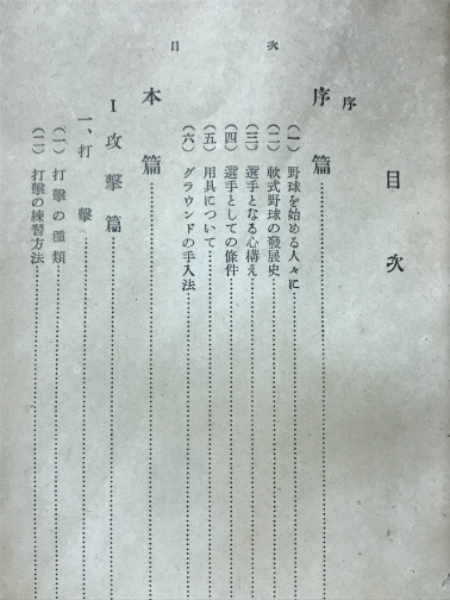 目次
目次
序
序篇
(一) 野球を始める人々に
(二) 軟式野球の發展史
(三) 選手となる心構え
(四) 選手としての條件
(五) 用具について
(六) グラウンドの手入法
本篇
I 攻擊篇
一、打擊
(一) 打擊の種類
(二) 打擊の練習方法